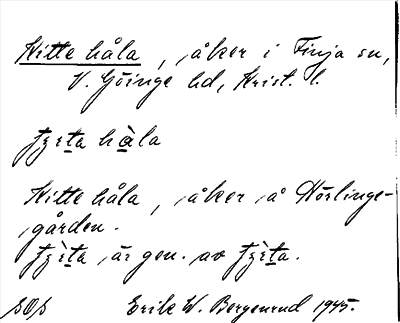 Kitte håla, åker i Finja sn,
V. Göinge hd, Krist. l.
håla
Kitte håla, åker å Hörlinge-
gården.
är gen. av
Erik W. Bergenrud 1945.